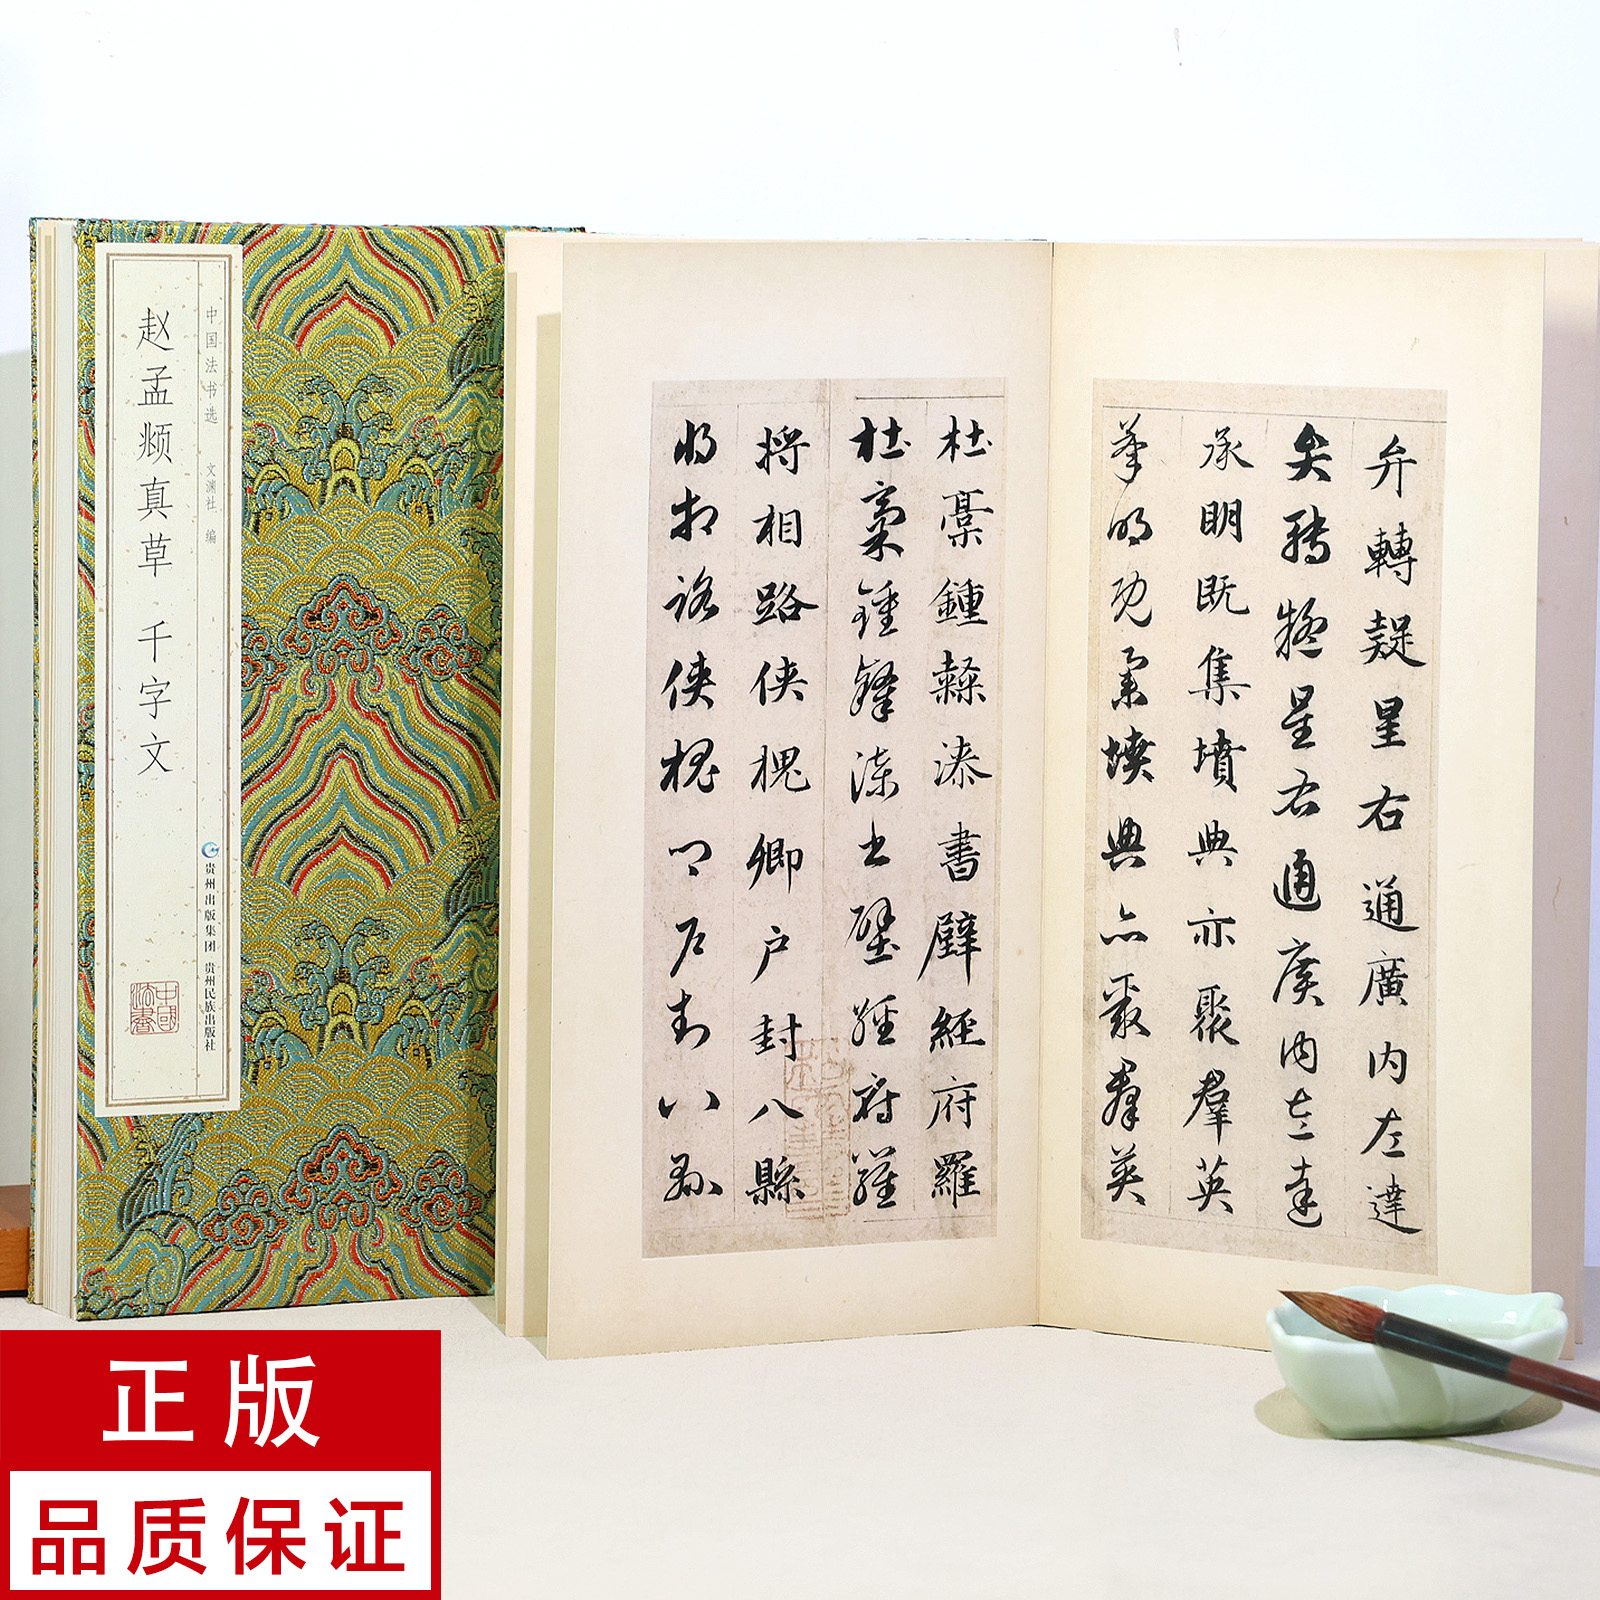 中国法书选 文渊社 编
赵孟頫真草千字文
贵州出版集团 贵州民族出版社
中國法書
弁轉疑星右通廣内左達
弁轉疑星右通廣内左達
承明既集墳典亦聚羣英
承明既集墳典亦聚羣英
杜稾鍾隸漆書壁經府羅
杜稾鍾隸漆書壁經府羅
將相路俠槐卿户封八縣
將相路俠槐卿户封八縣
正版
品质保证